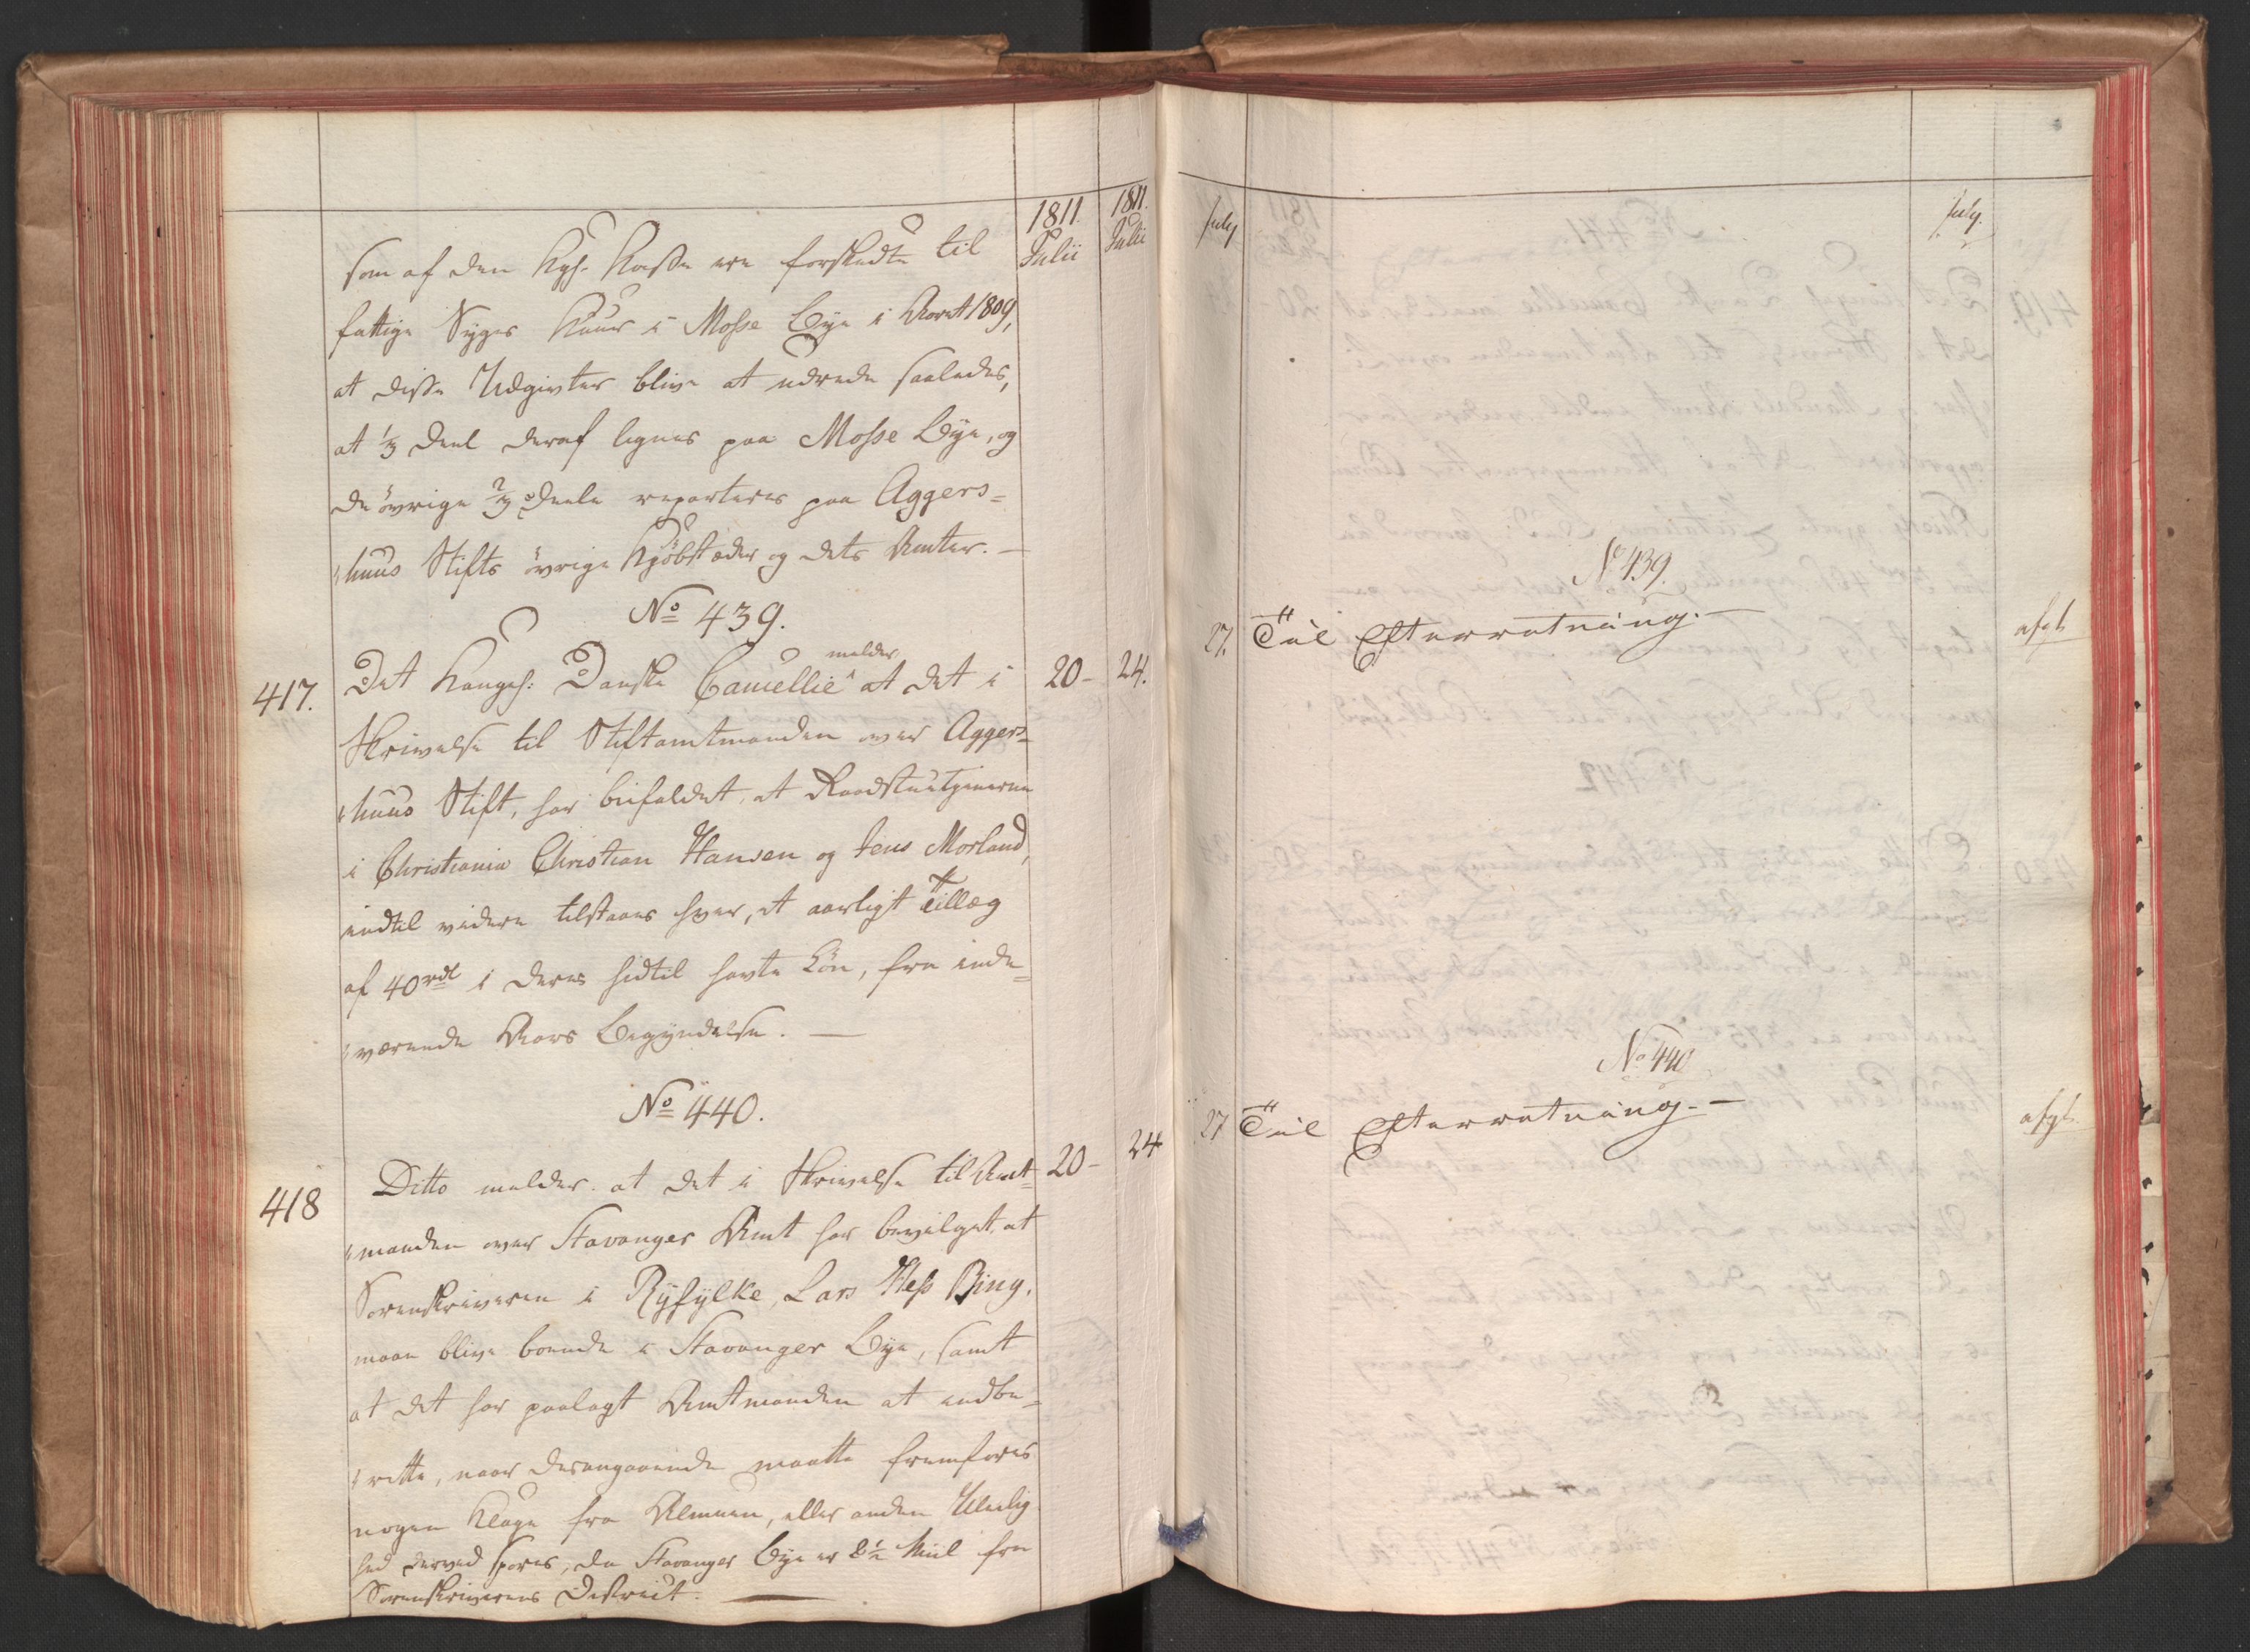 1811. 1811.
Julii Julii
som af den Kgh. Kasse ere forskudte til
fattige Syges Kuur i Mosse Bye i Aaret 1809,
at disse Udgivter blive at udrede saaledes,
at 1/3 Deel deraf lignes paa Mosse Bye, og
de övrige 2/3 Deele reparteres paa Aggers=
huus Stifts övrige Kjöbstæder og dets Amter. —
No 439.
417. Det Kongel: Danske Cancellie melder at det i 20- 24.
Skrivelse til Stiftamtmanden over Aggers=
huus Stift, har bifaldet, at Raadstuetjenerne
i Christiania Christian Hansen og Jens Morland,
indtil videre tilstaaes hver, et aarligt Tillæg
af 40 rdl i deres hidtil havte Lön, fra inde=
værende Aars Begyndelse. —
No 440.
418 Ditto melder at det i Skrivelse til Amt= 20- 24
manden over Stavanger Amt har bevilget, at
Sorenskriveren i Ryfylke, Lars Hess Bing,
maae blive boende i Stavanger Bye, samt
at det har paalagt Amtmanden at indbe=
rette, naar desangaaende maatte fremføres
nogen Klage fra Almuen, eller anden Uleilig
hed derved spores, da Stavanger Bye er 2 1/2 Miil fra
Sorenskriverens District. —
July July.
No 439.
27. Til Efterretning. — afgl.
No 440
27 Til Efterretning. — afgl.